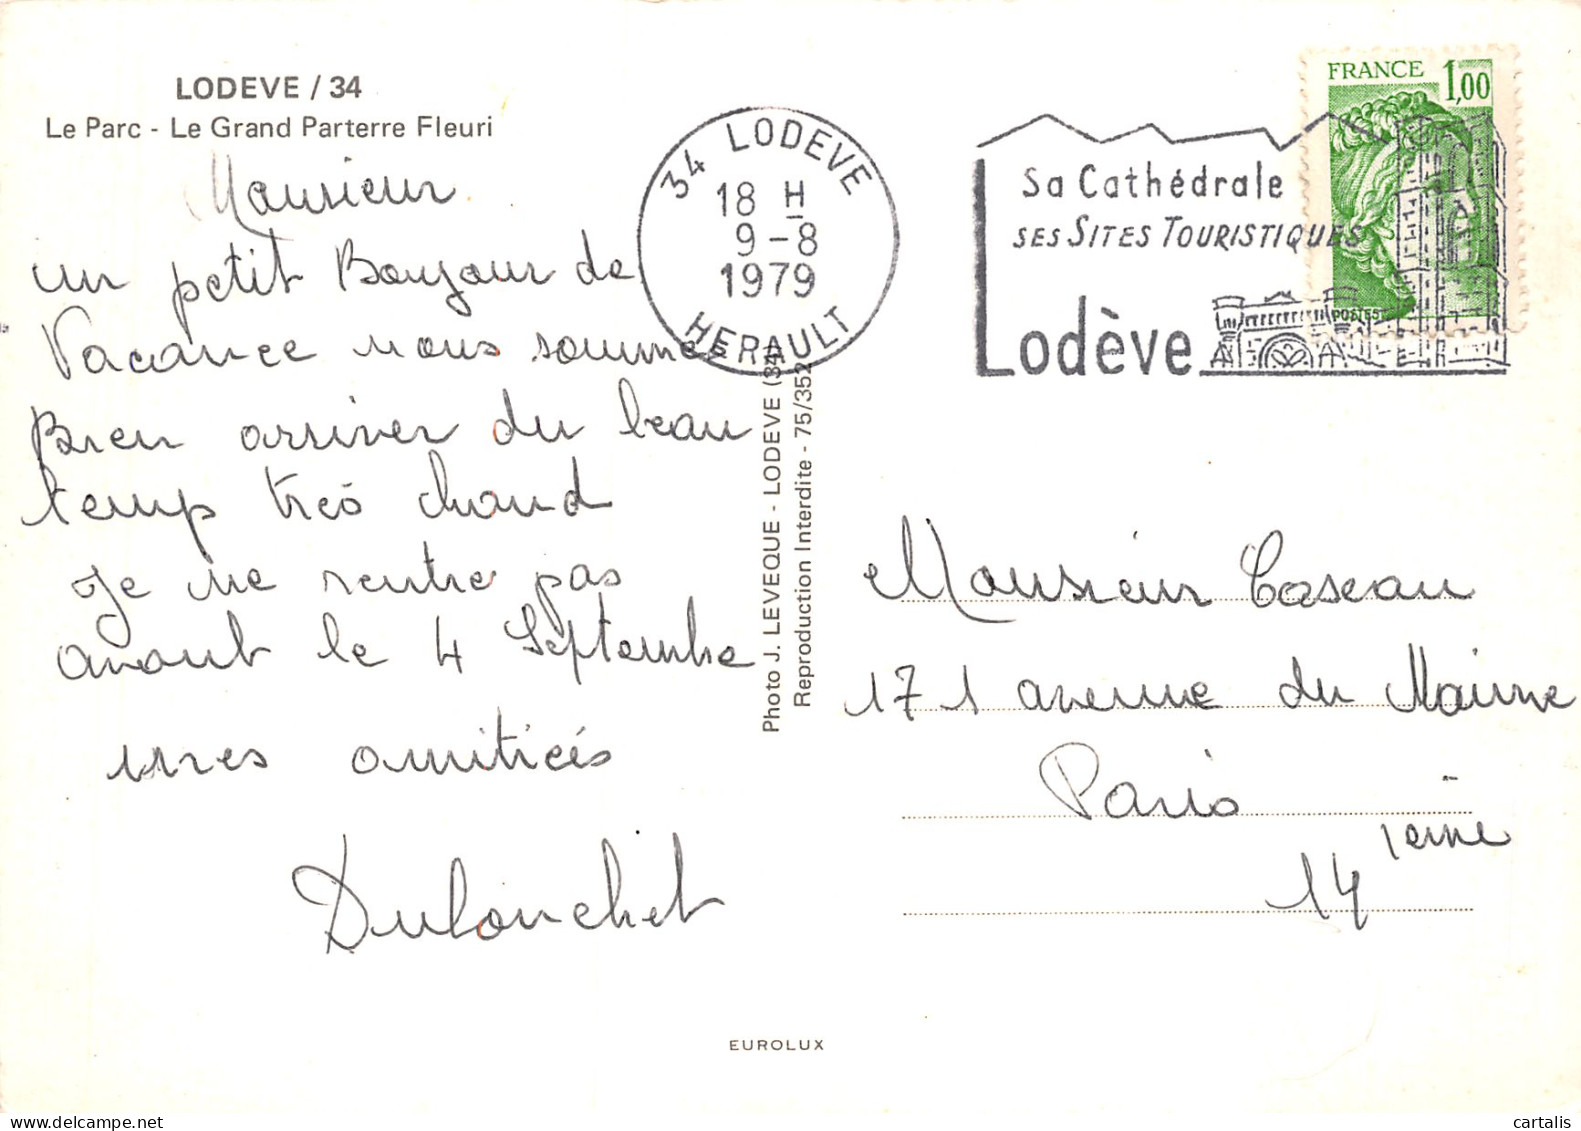 LODEVE / 34
Le Parc - Le Grand Parterre Fleuri
Monsieur
un petit Bonjour de
Vacance nous sommes
Bien arriver du beau
temp très chaud
Je ne rentre pas
avant le 4 Septembre
mes amitiés
Dulonchet
34 LODEVE
18 H
9-8
1979
HERAULT
Sa Cathédrale
SES SITES TOURISTIQUES
Lodève
POSTES
FRANCE 1,00
Photo J. LEVEQUE - LODEVE (34)
Reproduction Interdite - 75/352
Monsieur Caseau
171 avenue du Maine
Paris
14 ième
EUROLUX
www.delcampe.net
cartalis